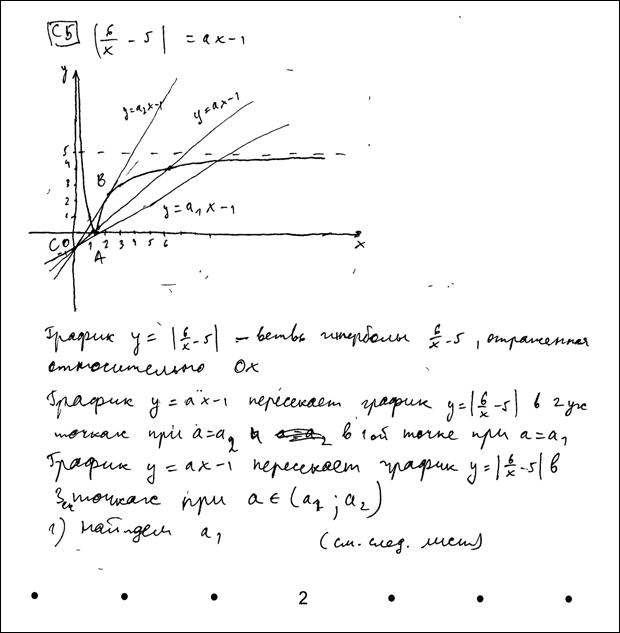 C5 |6/x - 5| = ax-1
y
y=a₂x-1
y=ax-1
5
4
3
2
1
B
y=a₁x-1
C O 1 2 3 4 5 6 x
A
График y = |6/x-5| – ветвь гиперболы 6/x-5, отраженная
относительно Ox
График y = ax-1 пересекает график y=|6/x-5| в 2ух
точках при a=a₂ и a=a₂ в 1ой точке при a=a₁
График y = ax-1 пересекает график y=|6/x-5| в
3ех точках при a ∈ (a₁; a₂)
1) найдем a₁ (см. след. лист)
2